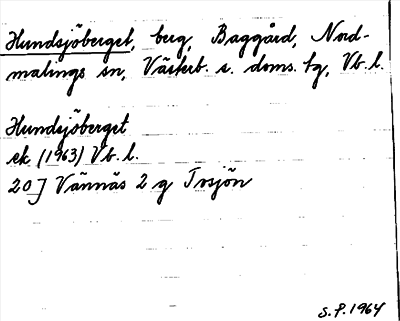 Hundsjöberget, berg, Baggård, Nord-
malings sn, Västerb. s. doms. tg, Vb. l.
Hundsjöberget
ek (1963) Vb. l.
20J Vännäs 2 g Tvsjön
S.P. 1964